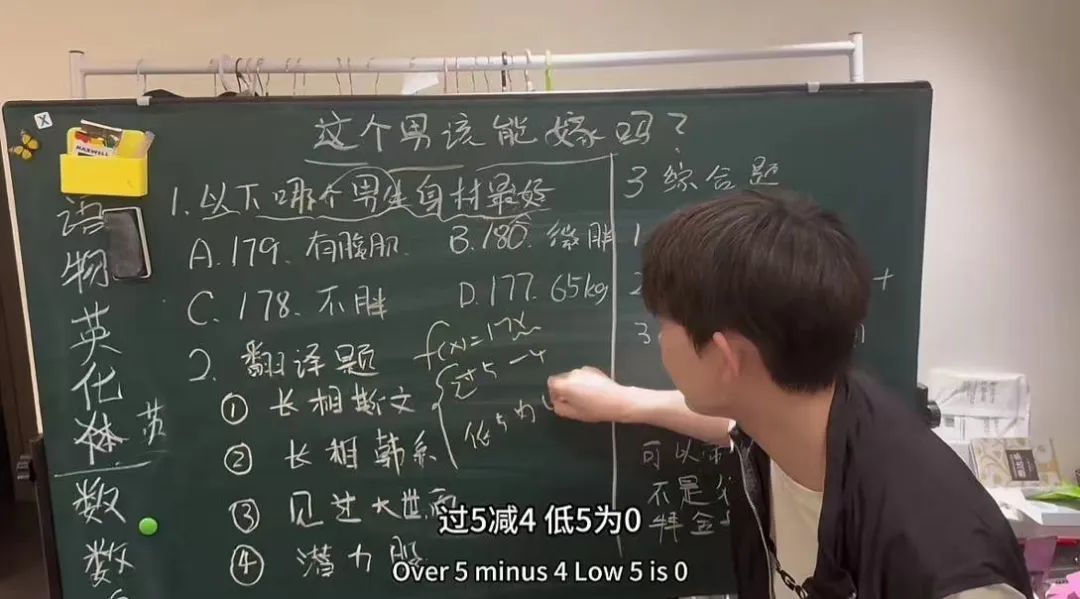 这个男孩能嫁吗?
1.以下哪个男生身材最好
A.179.有腹肌.
B.180.微胖
C.178.不胖
D.177.65kg
f(x)=17x
过5-4
低5为
2.翻译题
① 长相斯文
② 长相韩系
③ 见过大世面
④ 潜力股
3综合题
1
2
+
3
可以
不是
特金
语
物
英
化
体
英
数
数
MAXWELL
过5减4 低5为0
Over 5 minus 4 Low 5 is 0